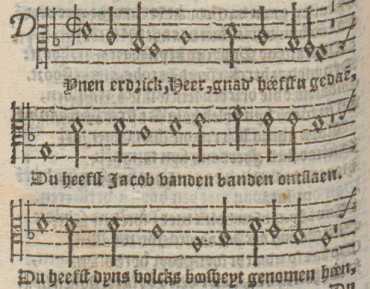 D
Ynen erdrick, Heer, gnad' heefstu gedaē,
Du heefst Jacob vanden banden ontslaen.
Du heefst dyns volcks boosheyt genomen heen,
Du